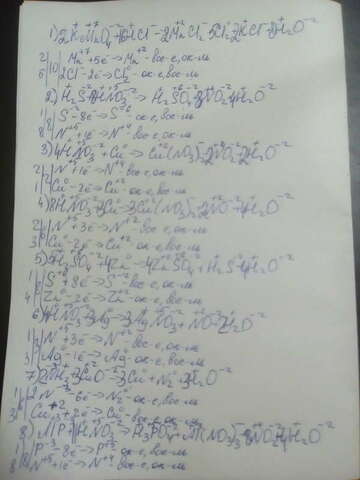 1) 2KMnO₄+16HCl-2MnCl₂-5Cl₂-2KCl-8H₂O
2| Mn⁺⁷+5e⁻→Mn⁺²-вос-е, ок-ль
5| 2Cl⁻-2e→Cl₂⁰-ок-е, вос-ль
2) H₂S+8HNO₃→H₂SO₄-8NO₂-4H₂O⁻²
1| S⁻²-8e⁻→S⁺⁶-ок-е, вос-ль
8| N⁺⁵+1e→N⁺⁴-вос-е, ок-ль
3) 4HNO₃+Cu⁰→Cu⁺²(NO₃)₂-2NO₂-2H₂O⁻²
2| N⁺⁵+1e→N⁺⁴-вос-е, ок-ль
1| Cu⁰-2e→Cu⁺²-ок-е, вос-ль
4) 8HNO₃-3Cu-3Cu(NO₃)₂-2NO-4H₂O⁻²
2| N⁺⁵+3e→N⁺²-вос-е, ок-ль
3| Cu⁰-2e→Cu⁺²-ок-е, вос-ль
5) 5H₂SO₄+4Zn⁰→4ZnSO₄+H₂S-4H₂O⁻²
1| S⁺⁶+8e→S⁻²-вос-е, ок-ль
4| Zn⁰-2e→Zn⁺²-ок-е, вос-ль
6) 4HNO₃-3Ag→3AgNO₃+NO-2H₂O⁻²
1| N⁺⁵+3e→N⁺²-вос-е, ок-ль
3| Ag⁰-1e→Ag⁺-ок-е, вос-ль
7) 2NH₃+3CuO⁻²-3Cu+N₂-3H₂O
1| 2N⁻³-6e→N₂⁰-ок-е, вос-ль
3| Cu⁺²+2e→Cu⁰-вос-е, ок-ль
8) AlP+11HNO₃→H₃PO₄-Al(NO₃)₃-8NO₂-4H₂O⁻²
1| P⁻³-8e→P⁺⁵-ок-е, вос-ль
8| N⁺⁵+1e→N⁺⁴-вос-е, ок-ль